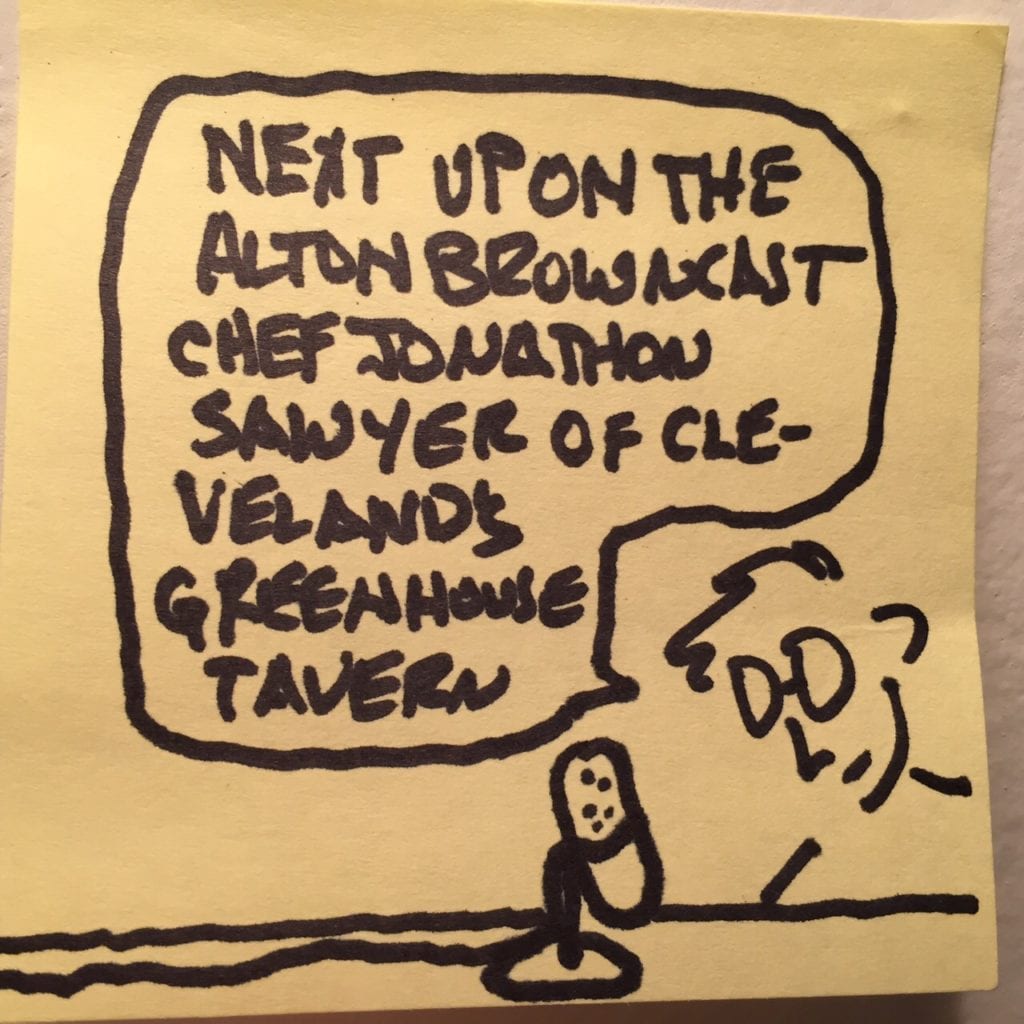 NEXT UP ON THE
ALTON BROWNCAST
CHEF JONATHON
SAWYER OF CLE-
VELAND'S
GREENHOUSE
TAVERN